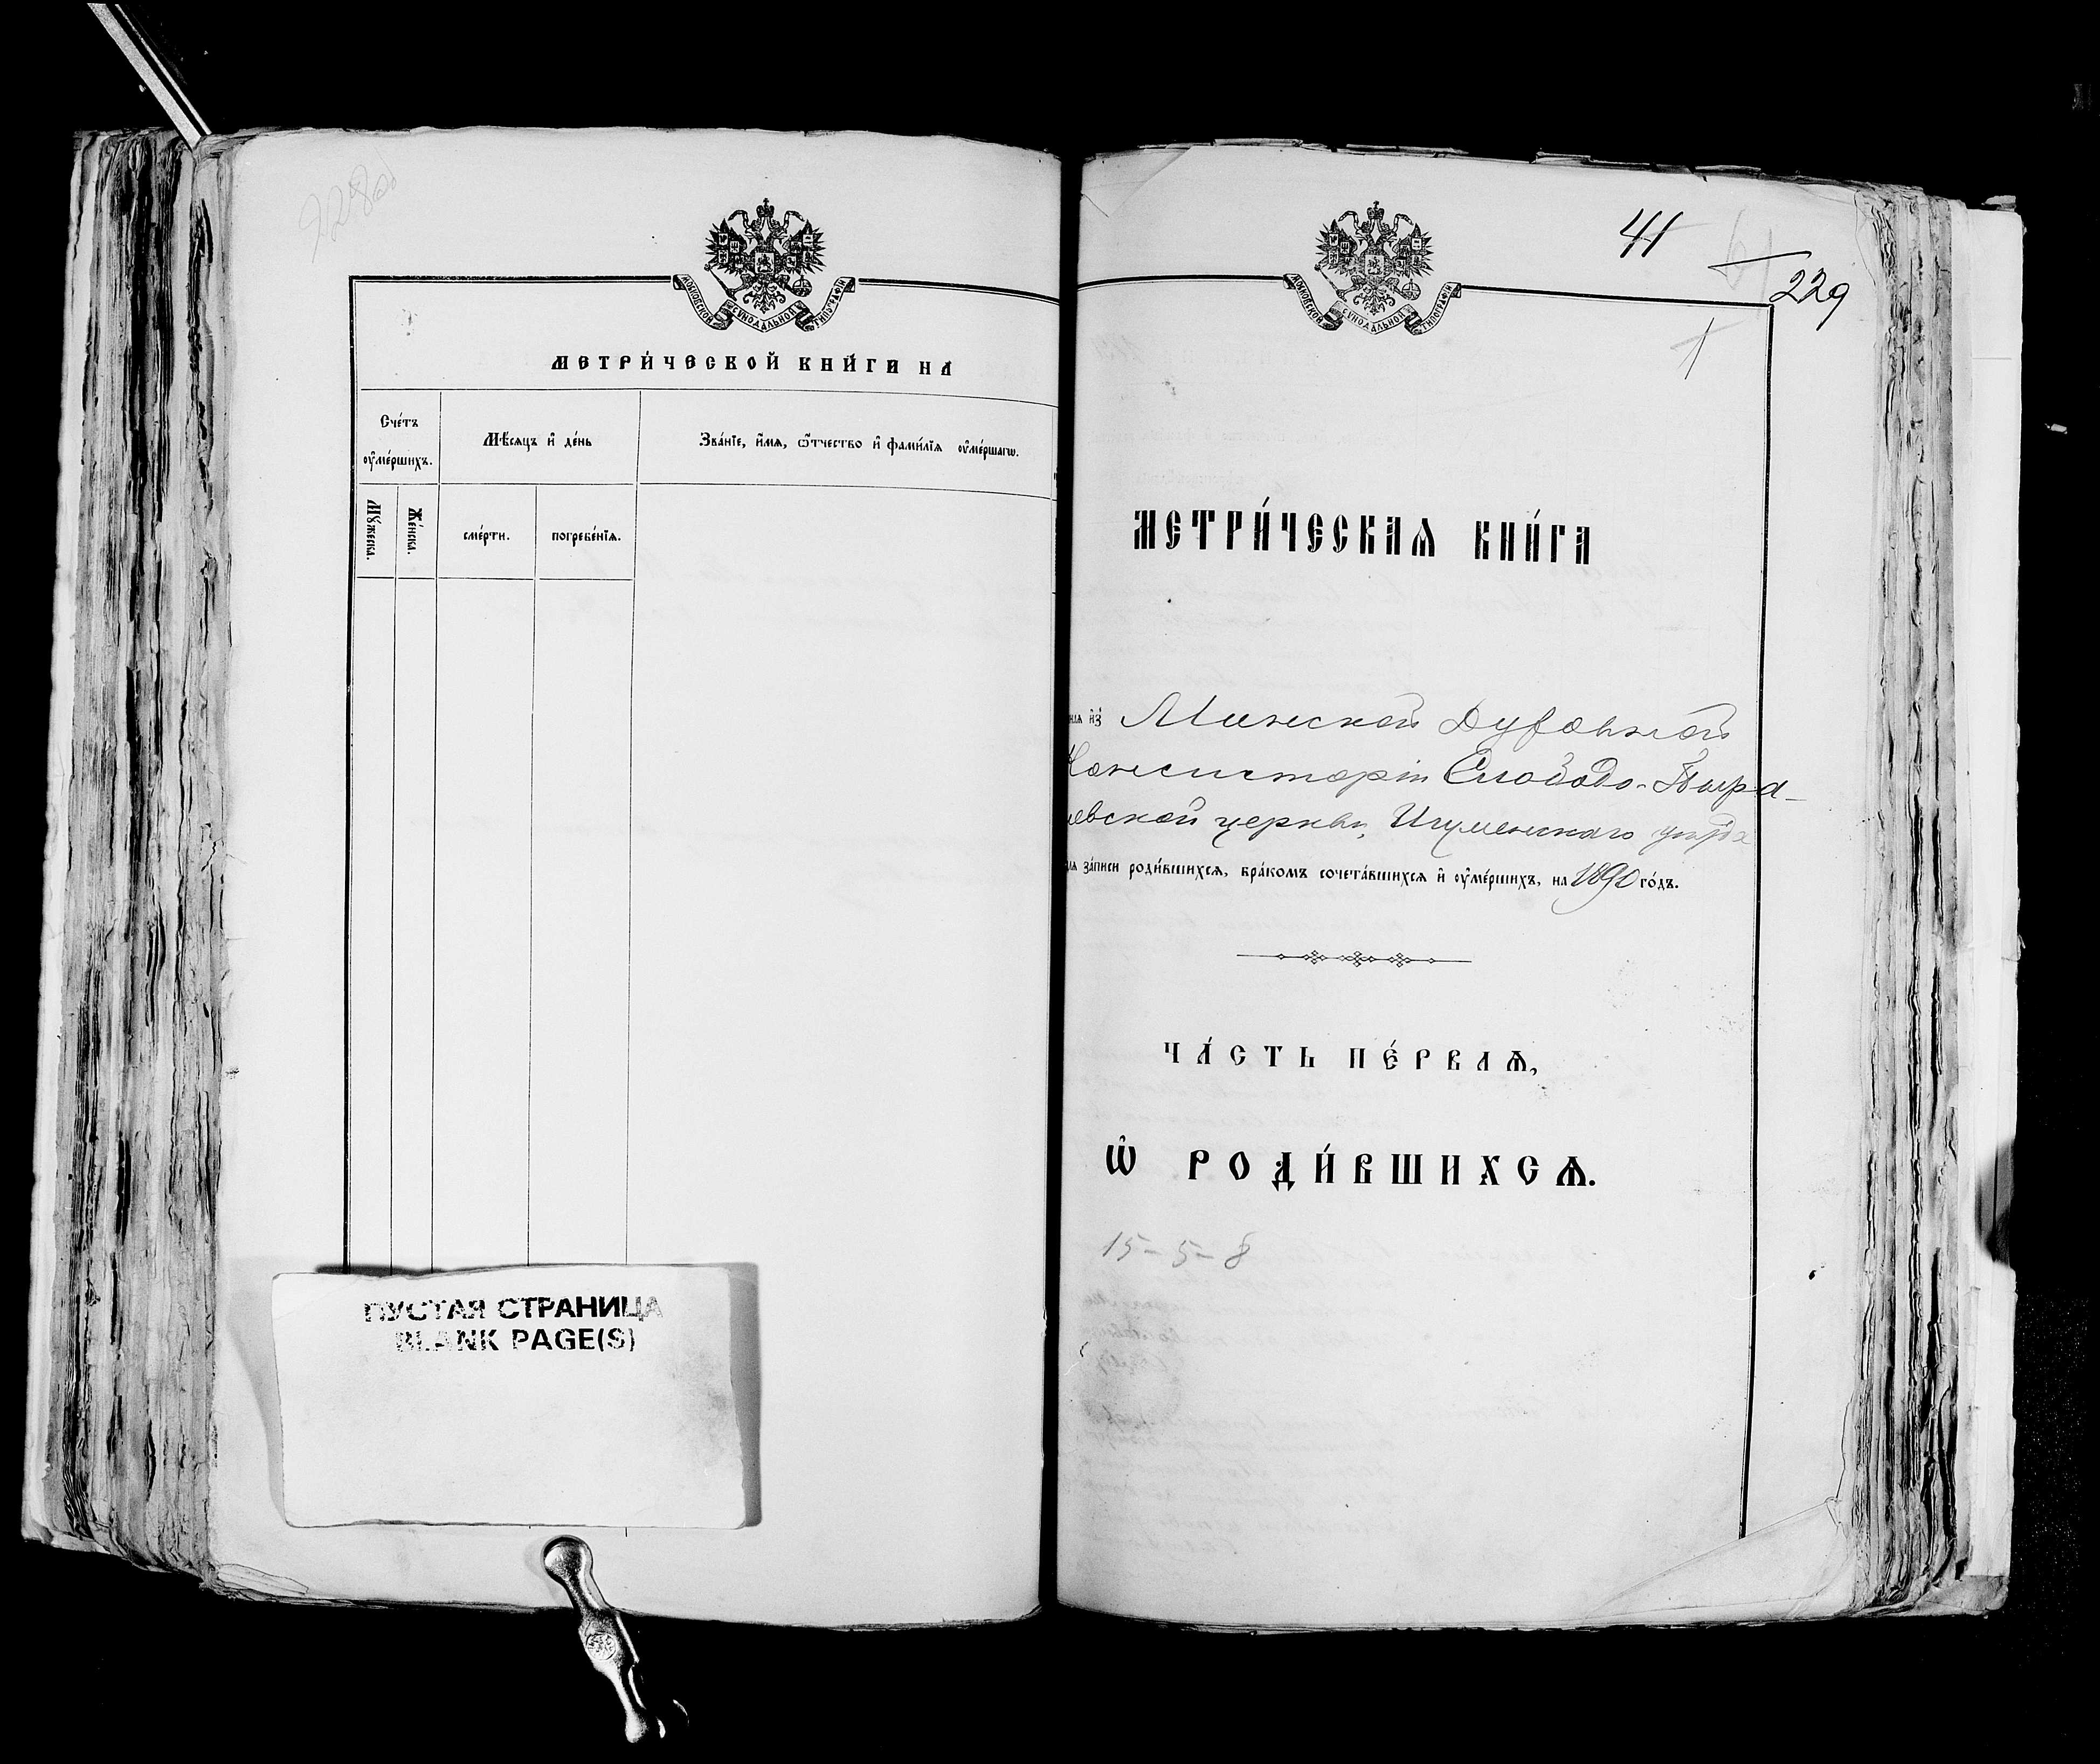 228об
МОСКОВСКОЙ СѴНОДАЛЬНОЙ ТИПОГРАФІИ
МЕТРИ́ЧЕСКОЙ КНИ́ГИ НА
Сче́тъ
ᲂу҆ме́ршихъ.
Мѣ́сяцъ и҆ де́нь
Зва́нїе, и҆́мѧ, ѻ҆́тчество и҆ фами́лїѧ ᲂу҆ме́ршагѡ.
Мꙋ́жеска.
Же́нска.
сме́рти.
погребе́нїѧ.
ПУСТАЯ СТРАНИЦА
BLANK PAGE(S)
41
229
1
МОСКОВСКОЙ СѴНОДАЛЬНОЙ ТИПОГРАФІИ
МЕТРИ́ЧЕСКАѦ КНИ́ГА
и҆з̾ Минской Духовной
Консисторіи Слободо-Пыра-
шевской церкви, Игуменскаго уѣзда
длѧ за́писи роди́вшихсѧ, бра́комъ сочета́вшихсѧ и҆ ᲂу҆ме́ршихъ, на 1890 го́дъ.
ЧА́СТЬ ПЕ́РВАѦ,
Ѡ҆ РОДИ́ВШИХСѦ.
15-5-8